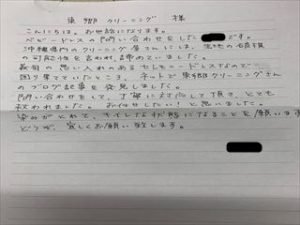 東郷クリーニング 様
こんにちは。お世話になります。
ベビードレスの問い合わせをした です。
沖縄県内のクリーニング屋さんには、生地の損傷
の可能性を言われ、諦めていました。
義母の思い入れのあるセレモニードレスなので
困り果てていたところ、ネットで東郷クリーニングさん
のブログ記事を発見しました。
問い合わせをして、丁寧に対応して頂て、とても
救われました。お任せしたい!と思いました。
染みがとれて、きれいな状態になることを願います
どうぞ、宜しくお願い致します。